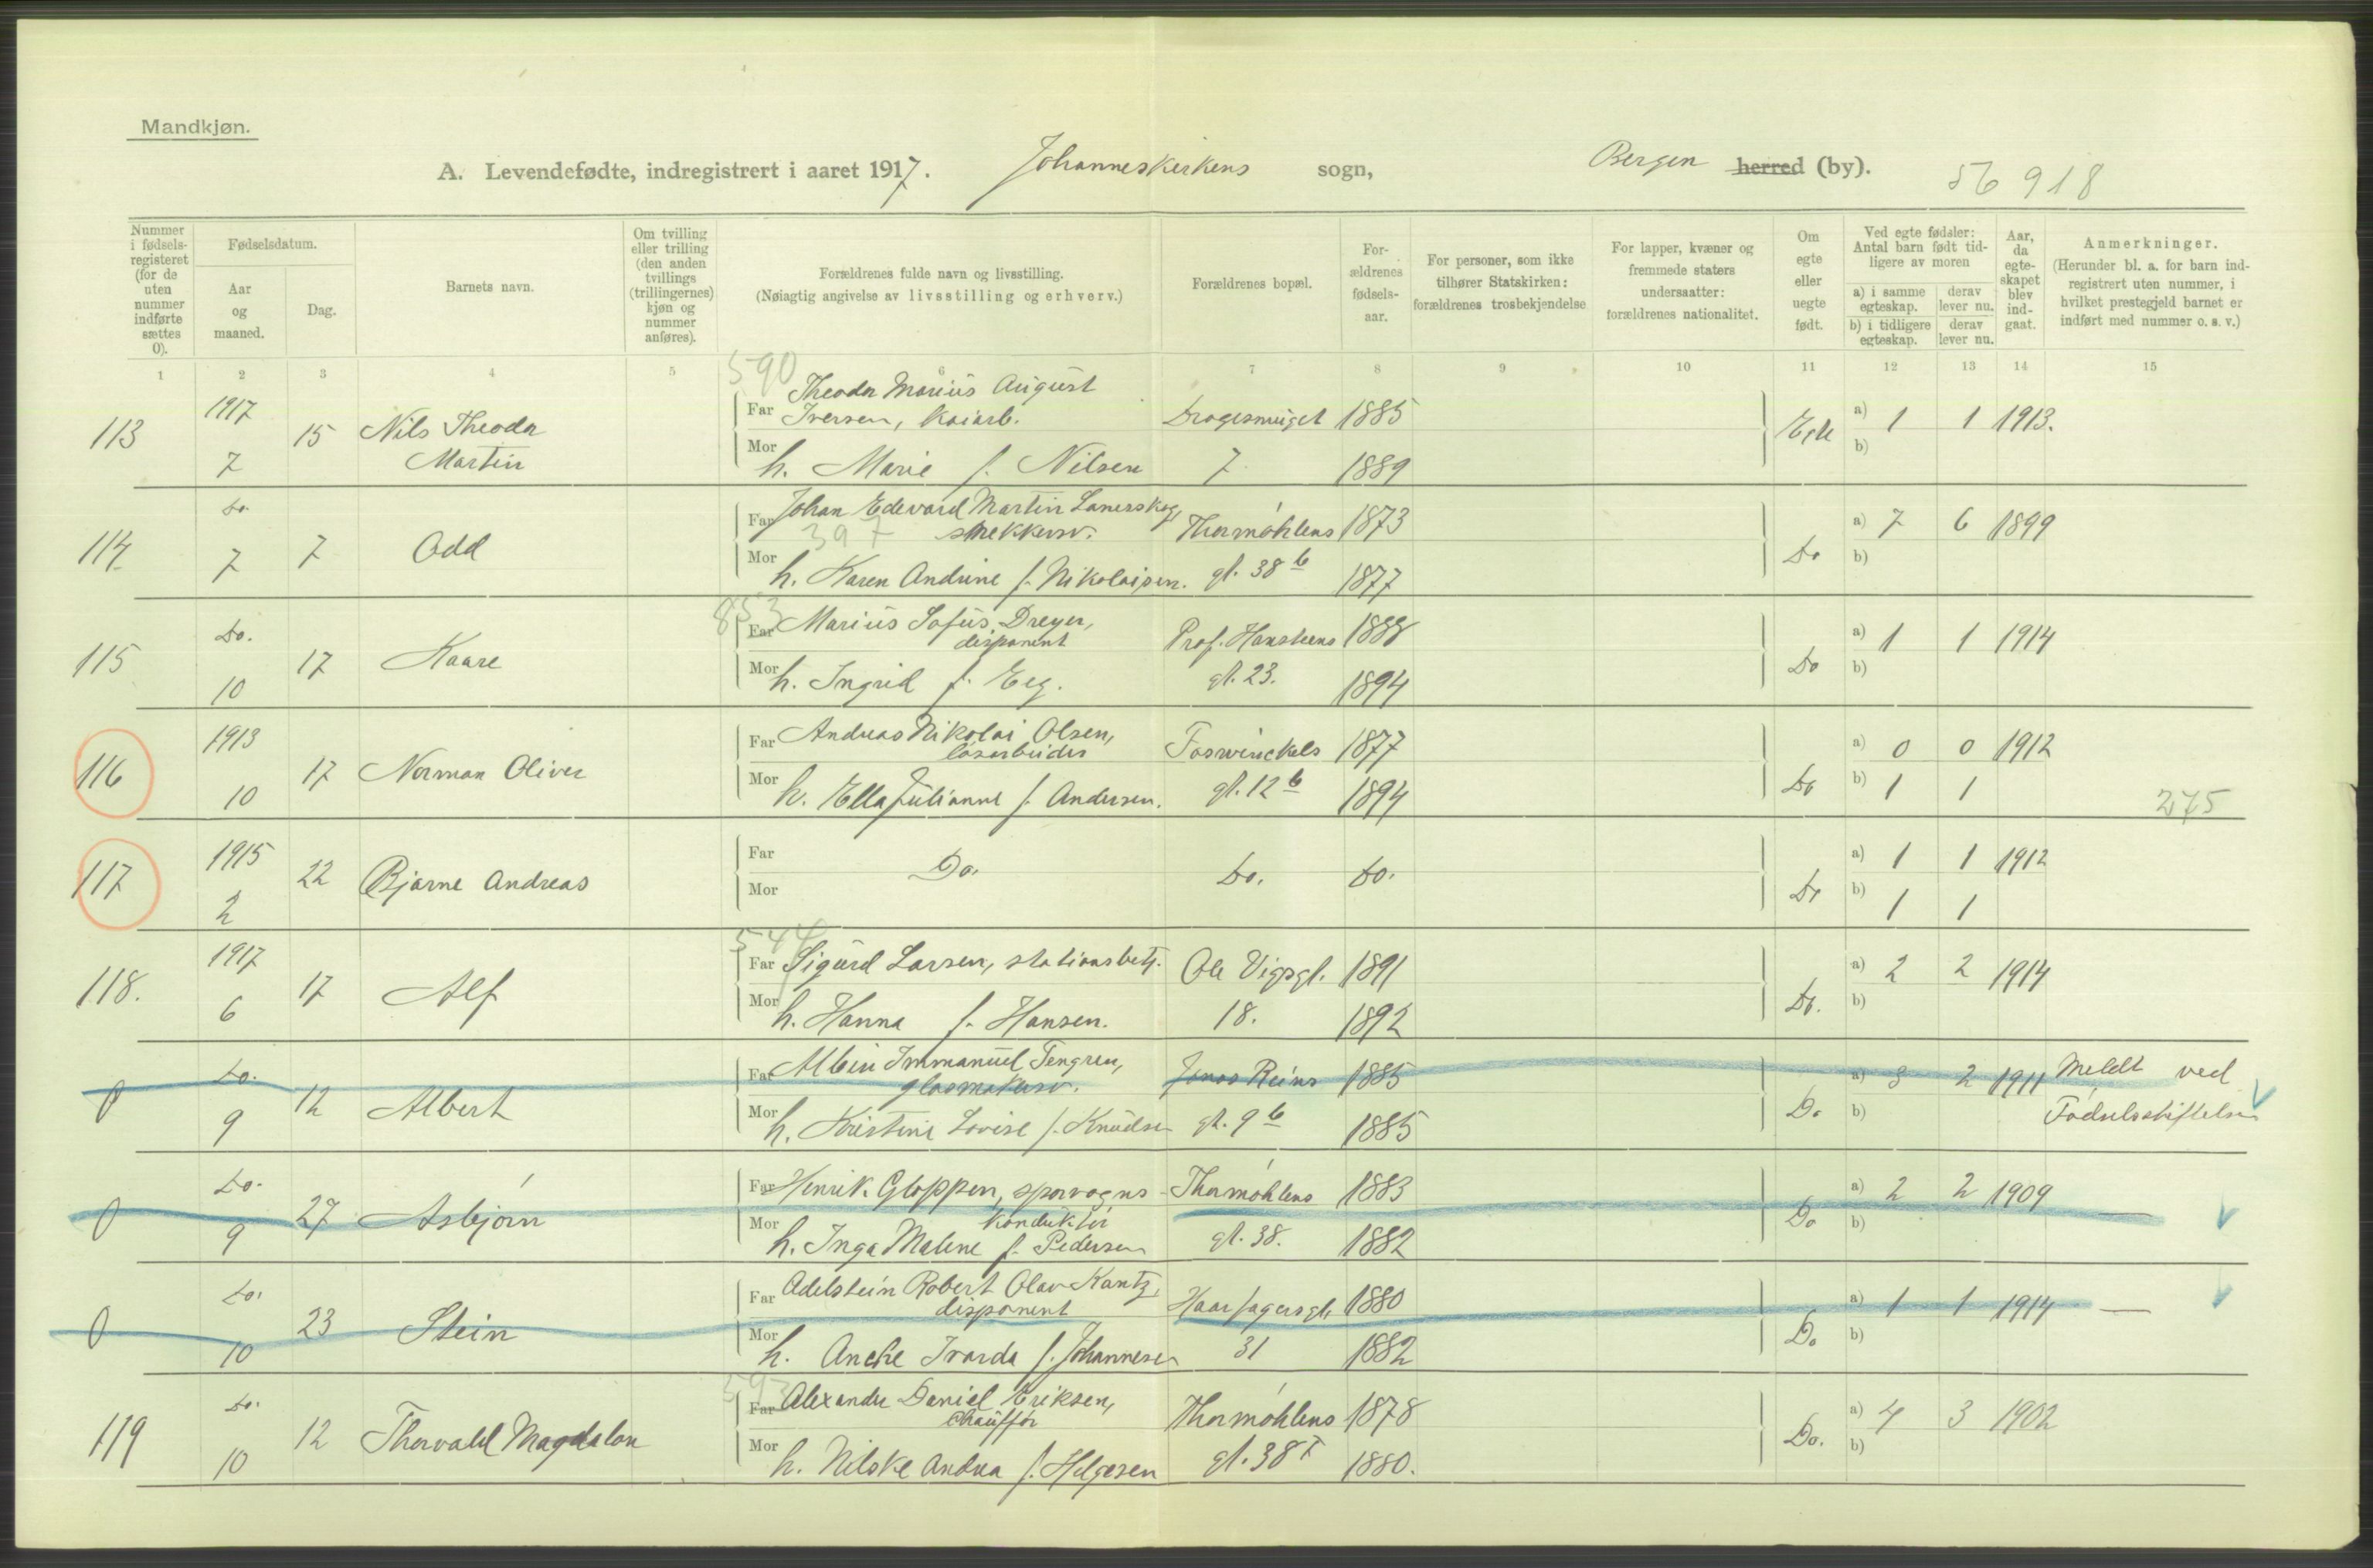 Mandkjøn.
A. Levendefødte, indregistrert i aaret 1917. Johanneskirkens sogn, Bergen herred (by). 56 918
Nummer i fødselsregisteret (for de uten nummer indførte sættes 0).
Fødselsdatum.
Aar og maaned.
Dag.
Barnets navn.
Om tvilling eller trilling (den anden tvillings (trillingernes) kjøn og nummer anføres).
Forældrenes fulde navn og livsstilling.
(Nøiagtig angivelse av livsstilling og erhverv.)
Forældrenes bopæl.
Forældrenes fødselsaar.
For personer, som ikke tilhører Statskirken: forældrenes trosbekjendelse
For lapper, kvæner og fremmede staters undersaatter: forældrenes nationalitet.
Om egte eller uegte født.
Ved egte fødsler: Antal barn født tidligere av moren
a) i samme egteskap. derav lever nu.
b) i tidligere egteskap. derav lever nu.
Aar, da egteskapet blev indgaat.
Anmerkninger.
(Herunder bl. a. for barn indregistrert uten nummer, i hvilket prestegjeld barnet er indført med nummer o. s. v.)
1 2 3 4 5 6 7 8 9 10 11 12 13 14 15
590
113 1917 7 15 Nils Theodor Martin
Far Theodor Marius August Iversen, kaiarb. Dragesmuget 7 1885 Egte a) 1 1 1913.
Mor h. Marie f. Nilsen 1889 b)
114 Do. 7 7 Odd
Far Johan Edevard Martin Lanerskog, snekkersv. 397 Thormøhlens gt. 38 b 1873 Do a) 7 6 1899
Mor h. Karen Andrine f. Nikolaisen. 1877 b)
853
115 Do. 10 17 Kaare
Far Marius Sofus Dreyer, disponent Prof. Hansteens gt. 23. 1888 Do a) 1 1 1914
Mor h. Ingrid f. Eeg. 1894 b)
116 1913 10 17 Norman Oliver
Far Andreas Nikolai Olsen, løsarbeider Foswinckels gt. 12 b 1877 Do a) 0 0 1912
Mor h. Ella Julianne f. Andersen. 1894 b) 1 1 275
117 1915 2 22 Bjarne Andreas
Far Mor Do. Do. Do. Do a) 1 1 1912
b) 1 1
544
118. 1917 6 17 Alf
Far Sigurd Larsen, stationsbetj. Ole Vigsgt. 18. 1891 Do. a) 2 2 1914
Mor h. Hanna f. Hansen. 1892 b)
0 Do. 9 12 Albert
Far Albin Immanuel Tengren, glasmakersv. Jonas Reins gt. 9 b 1885 Do a) 3 2 1911 Meldt ved Fødselsstiftelsen
Mor h. Kristine Lovise f. Knudsen 1885 b)
0 Do. 9 27 Asbjørn
Far Henrik Gloppen, sporvogns konduktør Thormøhlens gt. 38. 1883 Do a) 2 2 1909 —
Mor h. Inga Malene f. Pedersen 1882 b)
0 Do. 10 23 Stein
Far Adelstein Robert Olav Kantz, disponent Haarfagersgt. 31 1880 Do a) 1 1 1914 —
Mor h. Ancke Ivarda f. Johannesen 1882 b)
593
119 Do. 10 12 Thorvald Magdalon
Far Alexander Daniel Eriksen, chauffør Thormøhlens gt. 38 I 1878 Do. a) 4 3 1902
Mor h. Nilske Andrea f. Helgesen 1880. b)